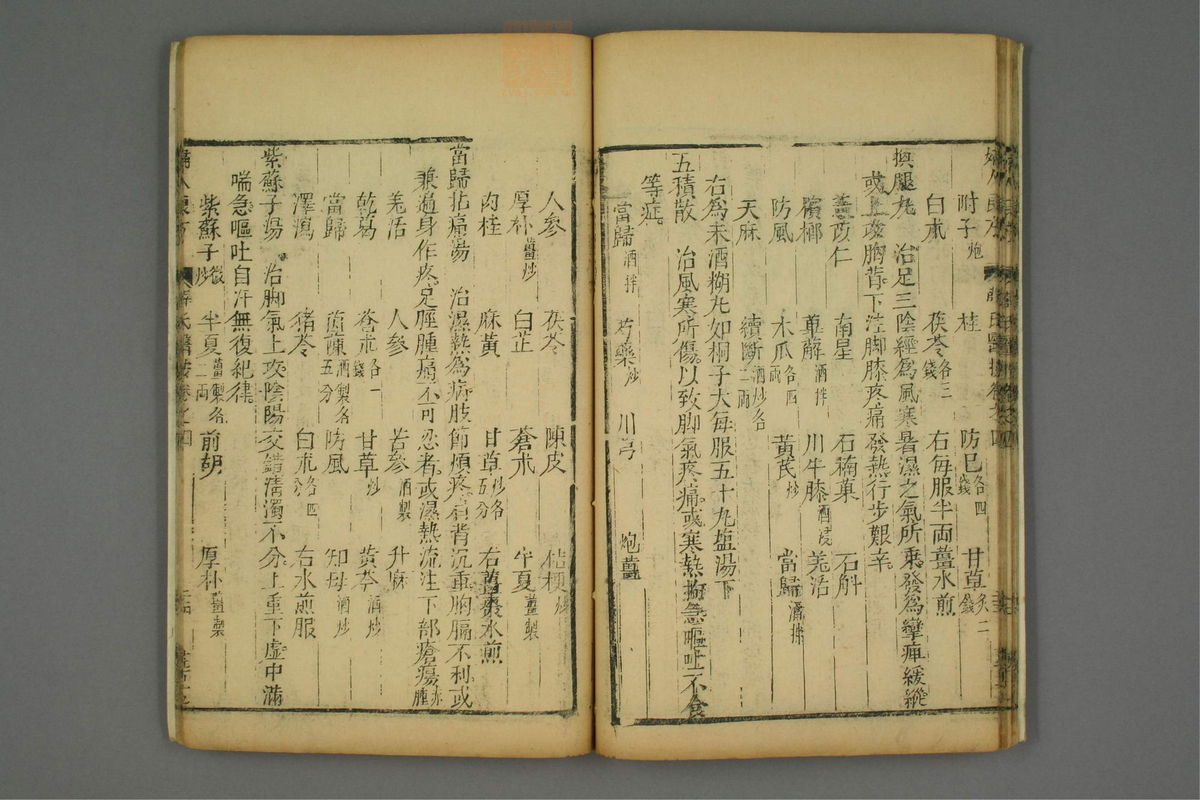 附子炮 桂 防已各四錢 甘草炙二錢
白朮 茯苓各三錢 右每服半両薑水煎
換腿丸 治足三陰經為風寒暑濕之氣所乘發為攣痺緩縱
或上攻胸背下注脚膝疼痛發熱行步艱辛
薏苡仁 南星 石楠葉 石斛
檳榔 萆薢酒拌 川牛膝酒浸 羌活
防風 木瓜各四両 黃芪炒 當歸酒拌
天麻 續斷酒炒各二両
右為末酒糊丸如桐子大每服五十丸塩湯下
五積散 治風寒所傷以致脚氣疼痛或寒熱拘急嘔吐不食
等症
當歸酒拌 芍藥炒 川芎 炮薑
人參 茯苓 陳皮 桔梗炒
厚朴薑炒 白芷 蒼朮 半夏薑製
肉桂 麻黃 甘草炒各五分 右薑棗水煎
當歸拈痛湯 治濕熱為病肢節煩疼肩背沉重胸膈不利或
兼遍身作疼足脛腫痛不可忍者或濕熱流注下部瘡瘍赤腫
羌活 人參 苦參酒製 升麻
乾葛 蒼朮各一錢 甘草炒 黃芩酒炒
當歸 茵蔯酒製各五分 防風 知母酒炒
澤瀉 猪苓 白朮各四分 右水煎服
紫蘇子湯 治脚氣上攻陰陽交錯清濁不分上重下虛中滿
喘急嘔吐自汗無復紀律
紫蘇子微炒 半夏薑製各二両 前胡 厚朴薑製
婦人良方 薛氏醫按卷之四